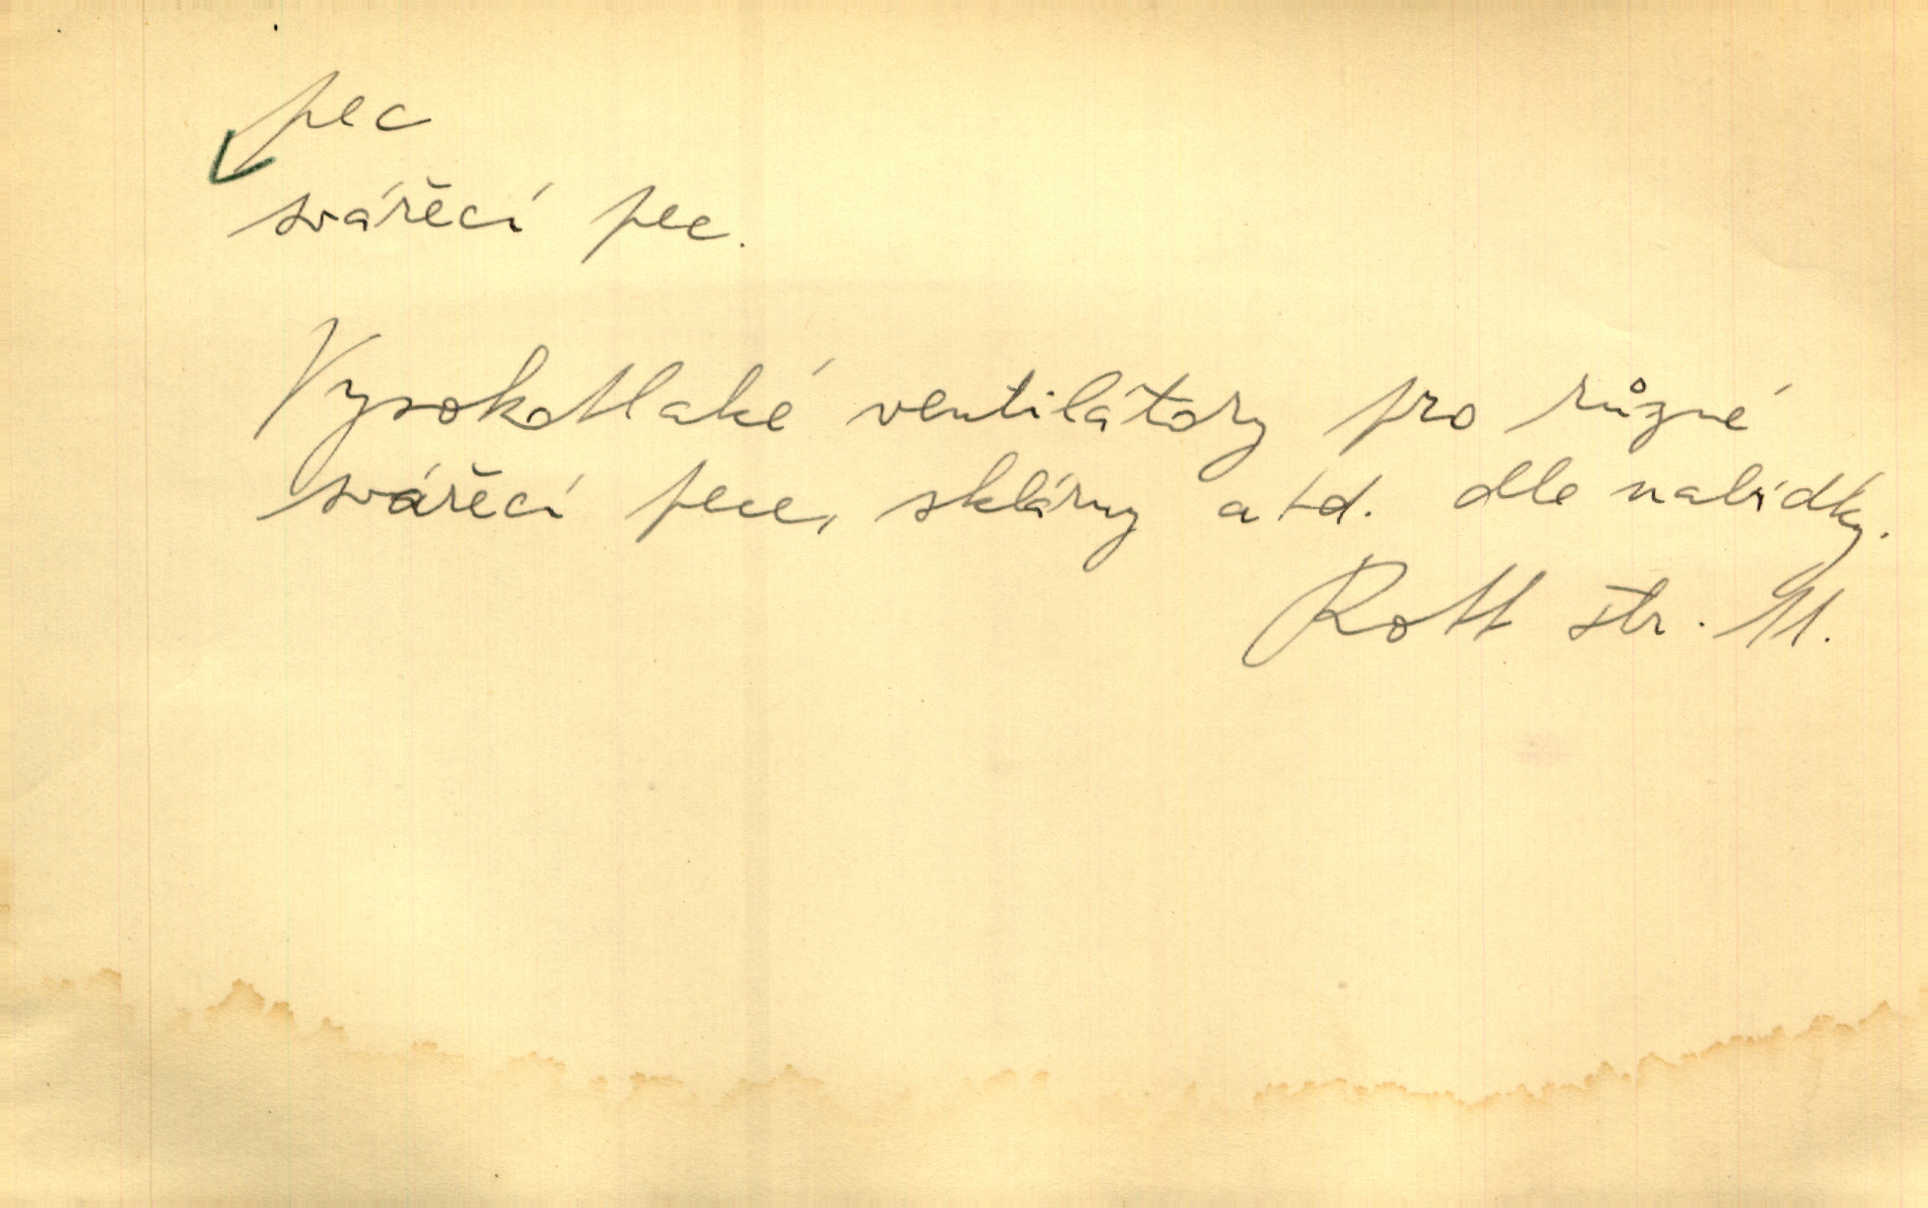 pec
svářecí pec.
Vysokotlaké ventilátory pro různé
svářecí pece, sklárny atd. dle nabídky.
Rott str. 11.